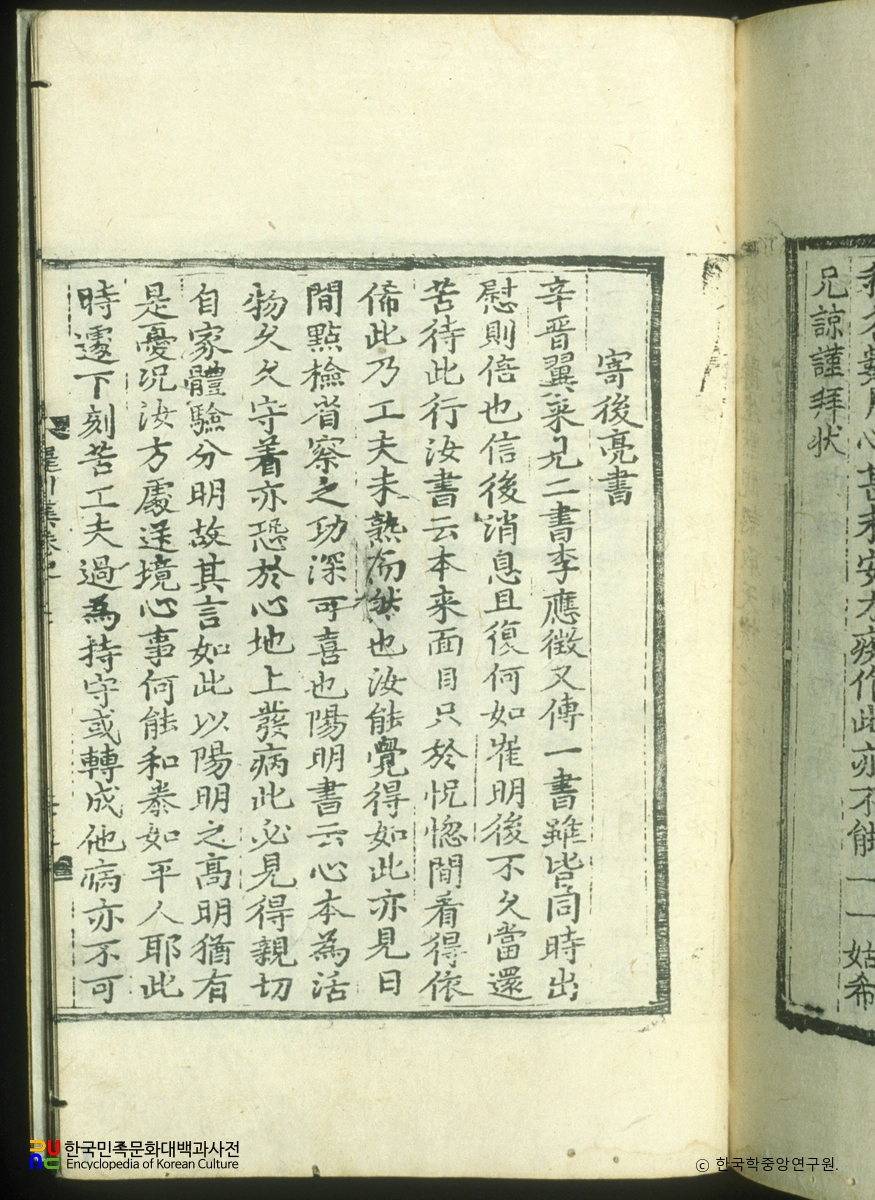 心甚未安
疾作此亦不能一一姑希
兄諒謹拜狀
寄後亮書
辛晋翼来兄二書李應徵又傳一書雖皆同時出
慰則倍也信後消息且復何如崔明後不久當還
苦待此行汝書云本来面目只於怳惚間看得依
俙此乃工夫未熟而然也汝能覺得如此亦見日
間點檢省察之功深可喜也陽明書云心本為活
物久久守着亦恐於心地上發病此必見得親切
自家體驗分明故其言如此以陽明之高明猶有
是憂况汝方處逆境心事何能和泰如平人耶此
時遽下刻苦工夫過為持守或轉成他病亦不可
한국민족문화대백과사전
Encyclopedia of Korean Culture
ⓒ 한국학중앙연구원.